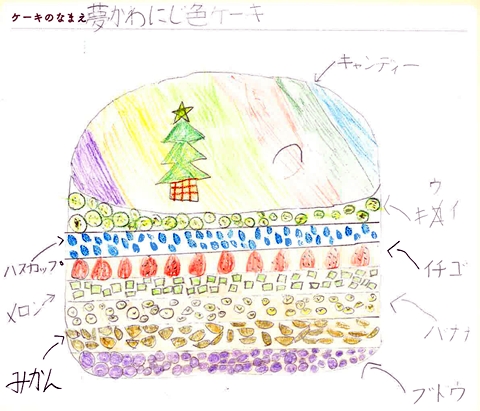 ケーキのなまえ 夢かわにじ色ケーキ
キャンディー
キウイ
ハスカップ
イチゴ
メロン
バナナ
みかん
ブドウ